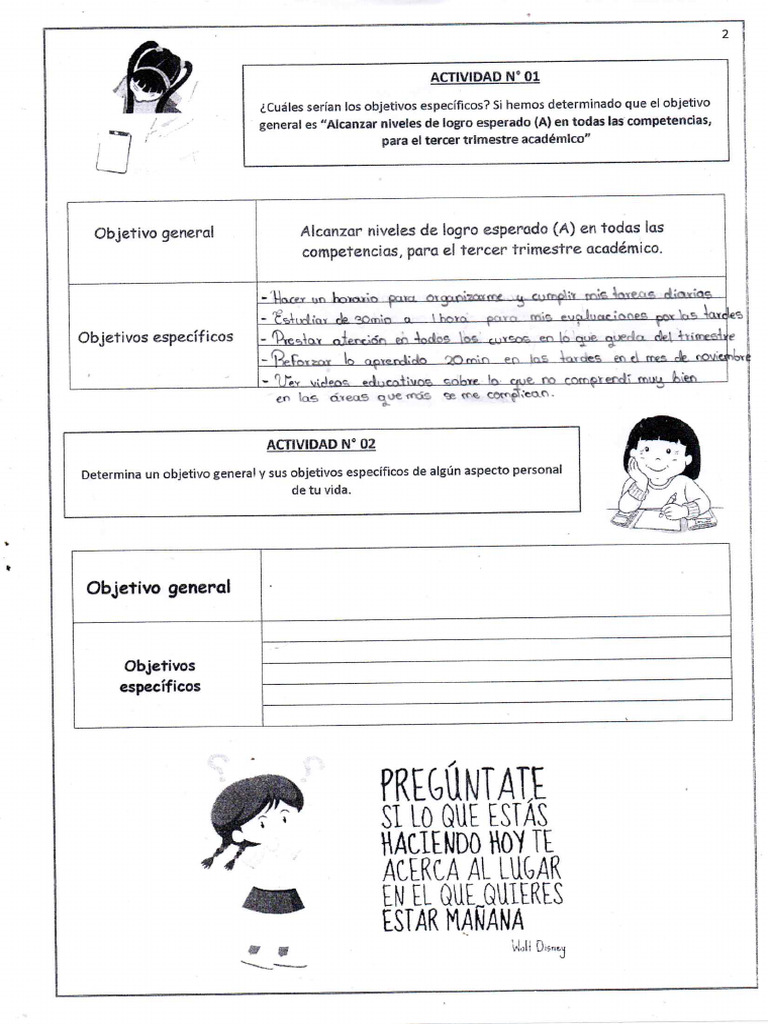 2
ACTIVIDAD N° 01
¿Cuáles serían los objetivos específicos? Si hemos determinado que el objetivo
general es “Alcanzar niveles de logro esperado (A) en todas las competencias,
para el tercer trimestre académico”
Objetivo general
Alcanzar niveles de logro esperado (A) en todas las
competencias, para el tercer trimestre académico.
Objetivos específicos
- Hacer un horario para organizarme y cumplir mis tareas diarias
- Estudiar de 30min a 1hora para mis evaluaciones por las tardes
- Prestar atención en todos los cursos en lo que queda del trimestre
- Reforzar lo aprendido 20min en las tardes en el mes de noviembre
- Ver videos educativos sobre lo que no comprendí muy bien
en las áreas que más se me complican.
ACTIVIDAD N° 02
Determina un objetivo general y sus objetivos específicos de algún aspecto personal
de tu vida.
Objetivo general
Objetivos
específicos
PREGÚNTATE
SI LO QUE ESTÁS
HACIENDO HOY TE
ACERCA AL LUGAR
EN EL QUE QUIERES
ESTAR MAÑANA
Walt Disney